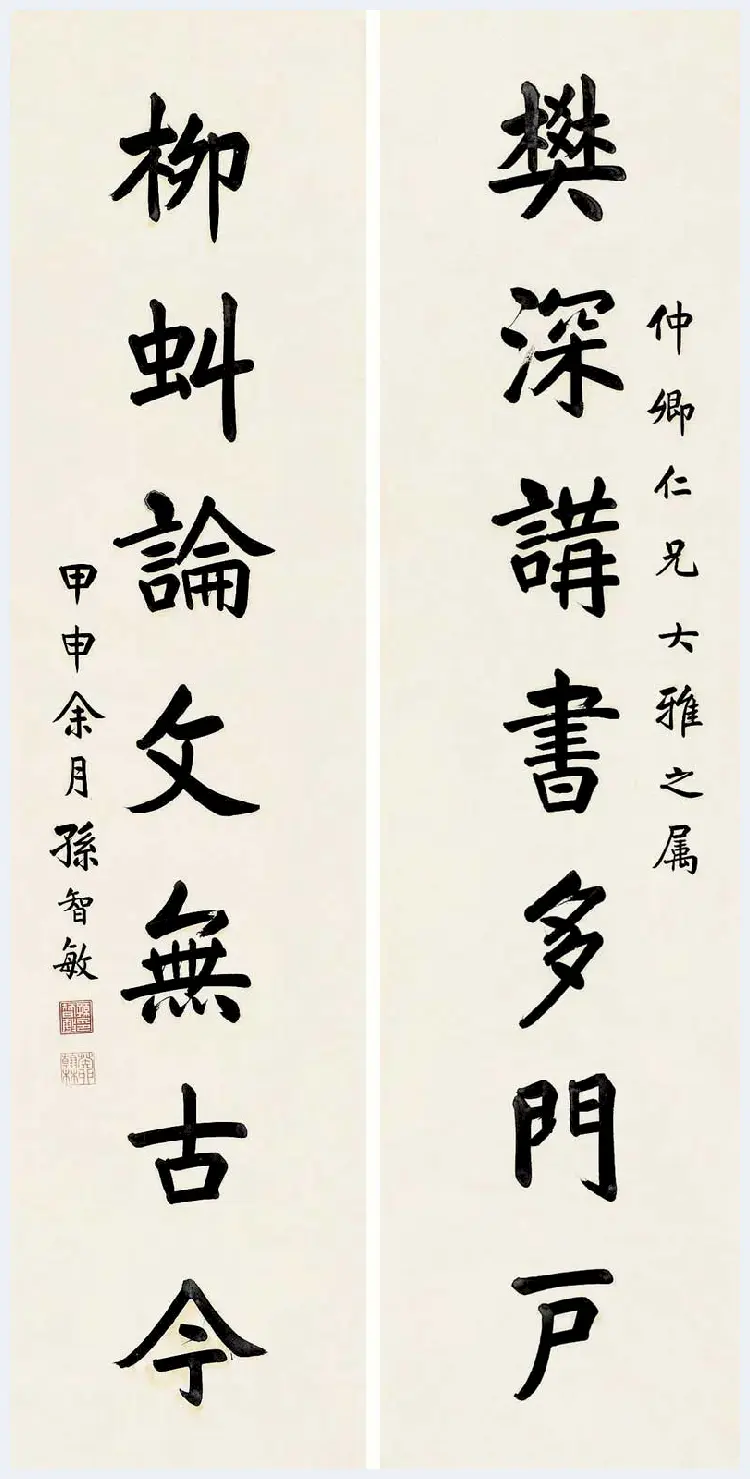 仲卿仁兄大雅之属
樊深講書多門户
柳虯論文無古今
甲申余月孫智敏